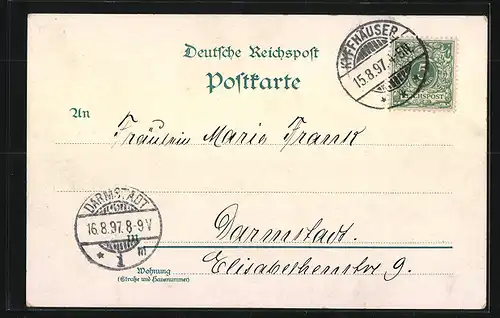 Deutsche Reichspost
Postkarte
KYFFHÄUSER
15.8.97.
5
REICHSPOST
An
Fräulein Marie Frank
DARMSTADT
16.8.97.8-9V
1
Darmstadt.
Elisabethenstr 9.
Wohnung
(Straße und Hausnummer)